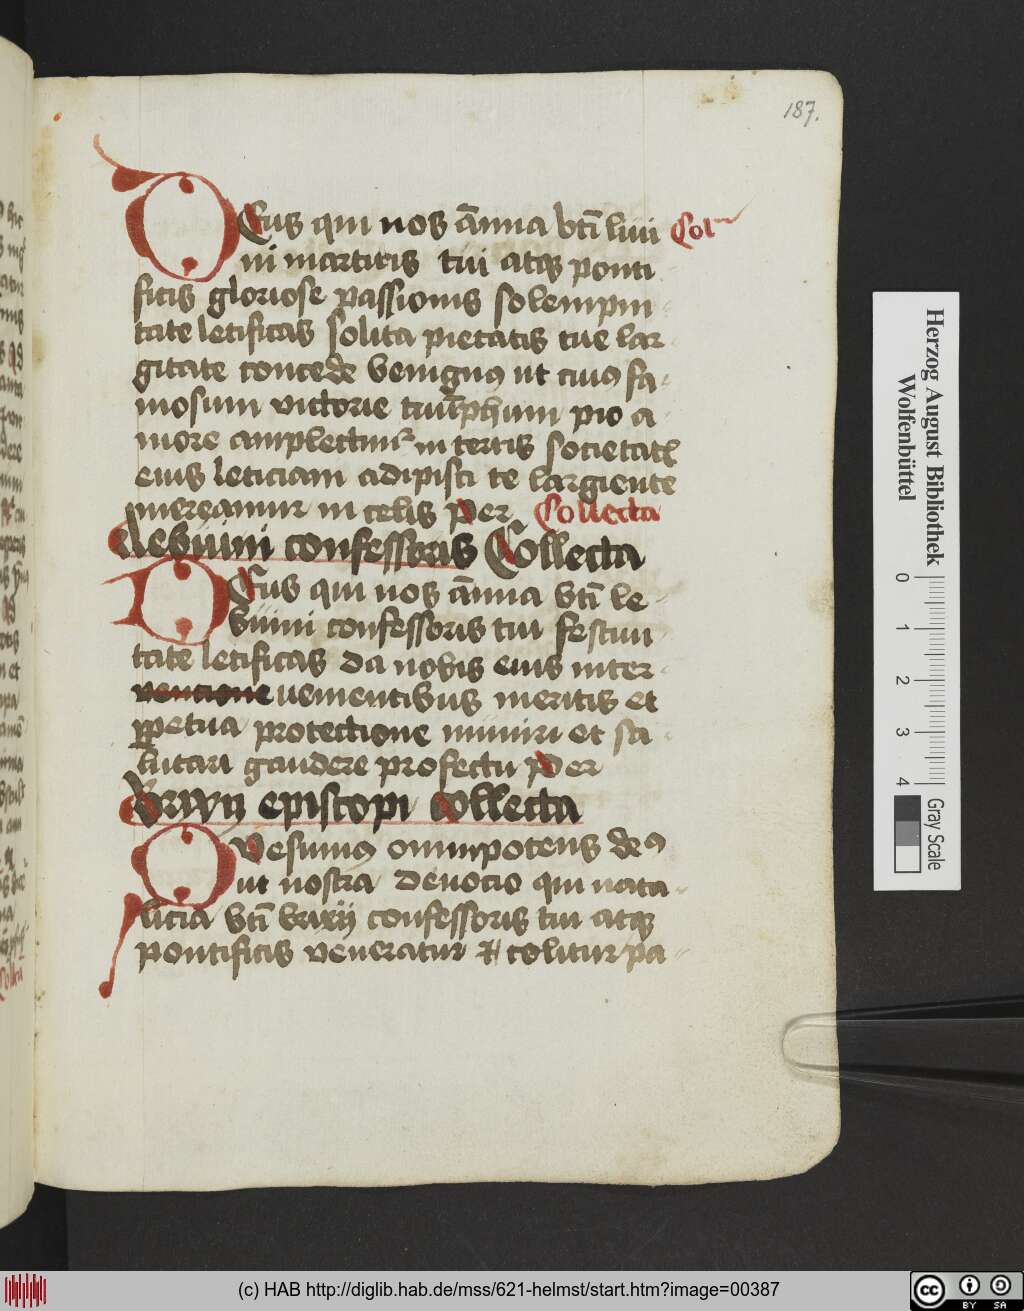 187.
DEus qui nos ānua bti liui Colr
ni martiris tui atqꝫ ponti
ficis gloriose passionis solempni
tate letificas solita pietatis tue lar
gitate concede benignꝰ ut cuiꝰ fa
mosum victorie triūphum pio a
more amplectimr in terris societatē
eius leticiam adipisci te largiente
mereamur in celis Per Collecta
Lebuini confessoris Collecta
DEus qui nos ānua bti le
buini confessoris tui festiui
tate letificas da nobis eius inter
uencione uenientibus meritis et
ꝑpetua protectione muniri et sa
lutari gaudere profectu Per
Brixij episcopi Collecta
QVesumꝰ omnipotens deꝰ
ut nostra deuocio qui nata
licia bti brixij confessoris tui atqꝫ
pontificis veneratur et colitur pa
Herzog August Bibliothek
Wolfenbüttel
0 1 2 3 4
Gray Scale
(c) HAB http://diglib.hab.de/mss/621-helmst/start.htm?image=00387
cc BY SA